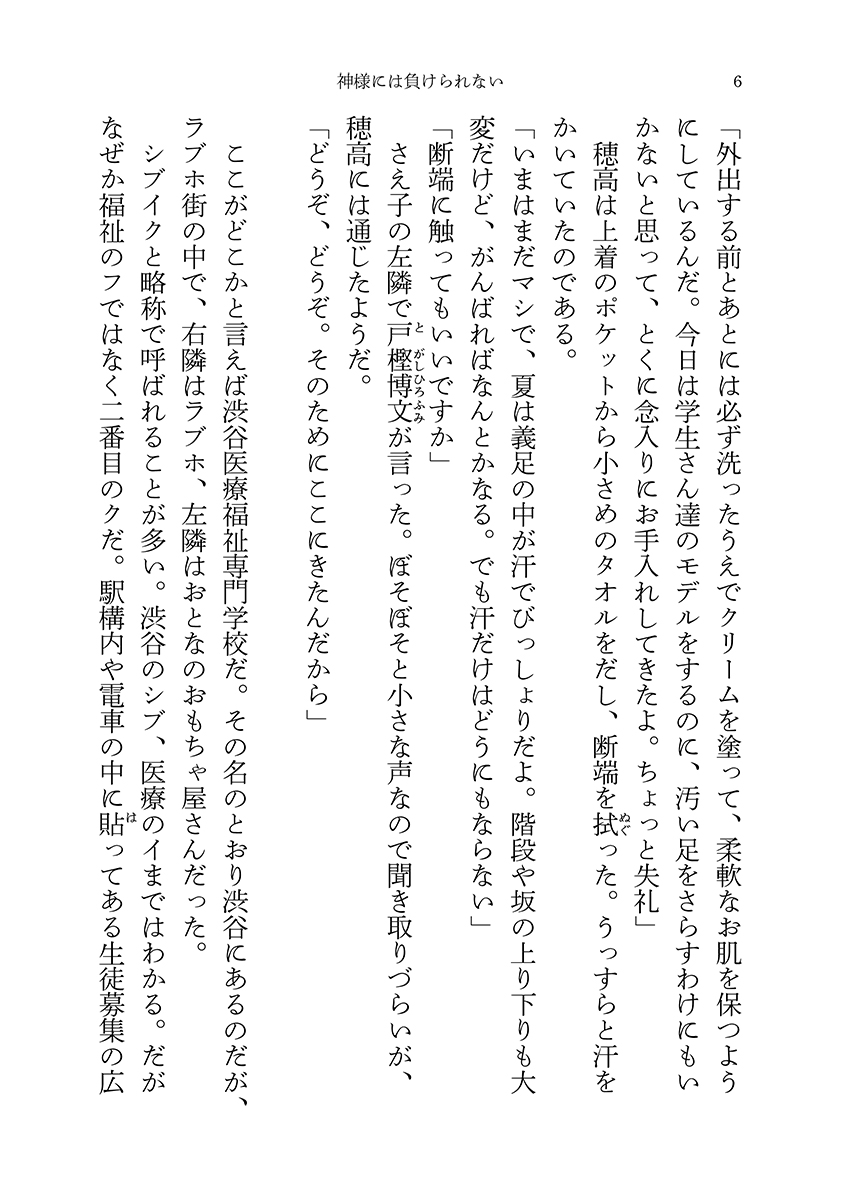 神様には負けられない
6
「外出する前とあとには必ず洗ったうえでクリームを塗って、柔軟なお肌を保つよう
にしているんだ。今日は学生さん達のモデルをするのに、汚い足をさらすわけにもい
かないと思って、とくに念入りにお手入れしてきたよ。ちょっと失礼」
　穂高は上着のポケットから小さめのタオルをだし、断端を拭った。うっすらと汗を
ぬぐ
かいていたのである。
「いまはまだマシで、夏は義足の中が汗でびっしょりだよ。階段や坂の上り下りも大
変だけど、がんばればなんとかなる。でも汗だけはどうにもならない」
「断端に触ってもいいですか」
　さえ子の左隣で戸樫博文が言った。ぼそぼそと小さな声なので聞き取りづらいが、
と がしひろふみ
穂高には通じたようだ。
「どうぞ、どうぞ。そのためにここにきたんだから」
　ここがどこかと言えば渋谷医療福祉専門学校だ。その名のとおり渋谷にあるのだが、
ラブホ街の中で、右隣はラブホ、左隣はおとなのおもちゃ屋さんだった。
　シブイクと略称で呼ばれることが多い。渋谷のシブ、医療のイまではわかる。だが
なぜか福祉のフではなく二番目のクだ。駅構内や電車の中に貼ってある生徒募集の広
は